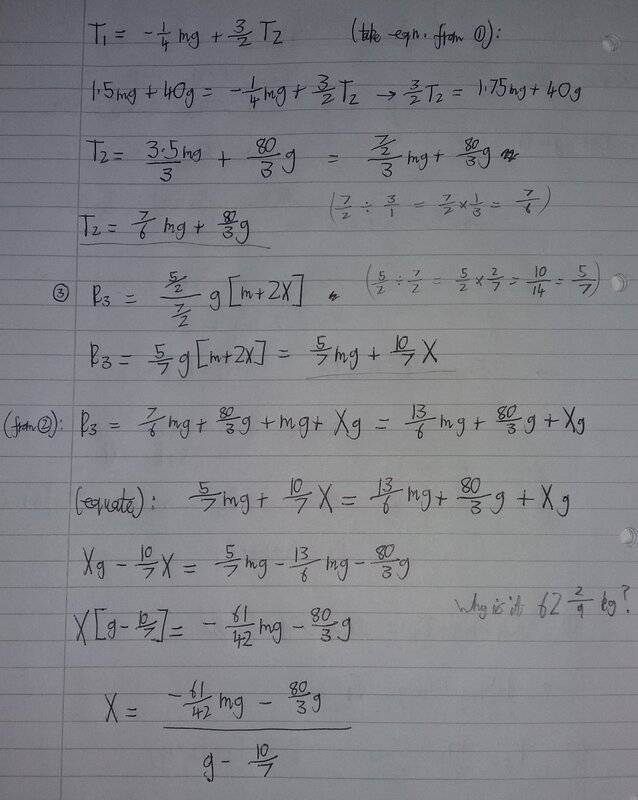 T₁ = -1/4 mg + 3/2 T₂ (take eqn. from ①):
1.5mg + 40g = -1/4 mg + 3/2 T₂ → 3/2 T₂ = 1.75mg + 40g
T₂ = 3.5mg/3 + 80/3 g = (7/2)/3 mg + 80/3 g
T₂ = 7/6 mg + 80/3 g (7/2 ÷ 3/1 = 7/2 × 1/3 = 7/6)
③ R₃ = (5/2)/(7/2) g [m+2X] (5/2 ÷ 7/2 = 5/2 × 2/7 = 10/14 = 5/7)
R₃ = 5/7 g [m+2X] = 5/7 mg + 10/7 X
(from ②): R₃ = 7/6 mg + 80/3 g + mg + Xg = 13/6 mg + 80/3 g + Xg
(equate): 5/7 mg + 10/7 X = 13/6 mg + 80/3 g + Xg
Xg - 10/7 X = 5/7 mg - 13/6 mg - 80/3 g
X[g - 10/7] = - 61/42 mg - 80/3 g Why is it 62 2/9 kg?
X = (-61/42 mg - 80/3 g)/(g - 10/7)